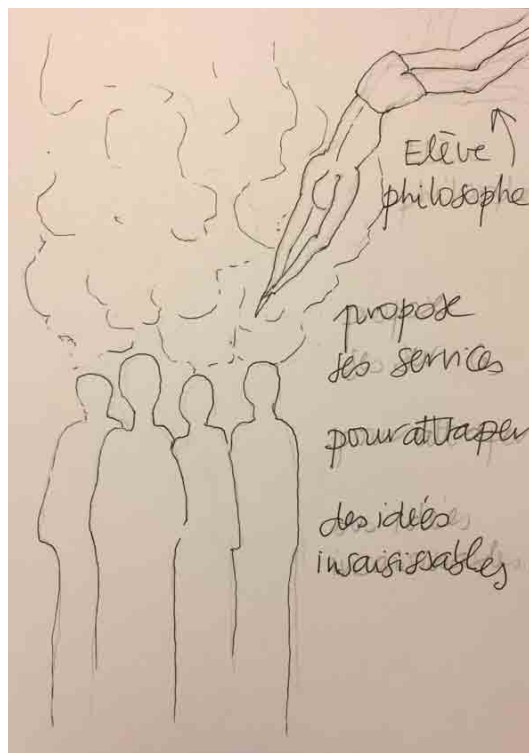 Elève
philosophe
propose
ses services
pour attraper
des idées
insaisissables